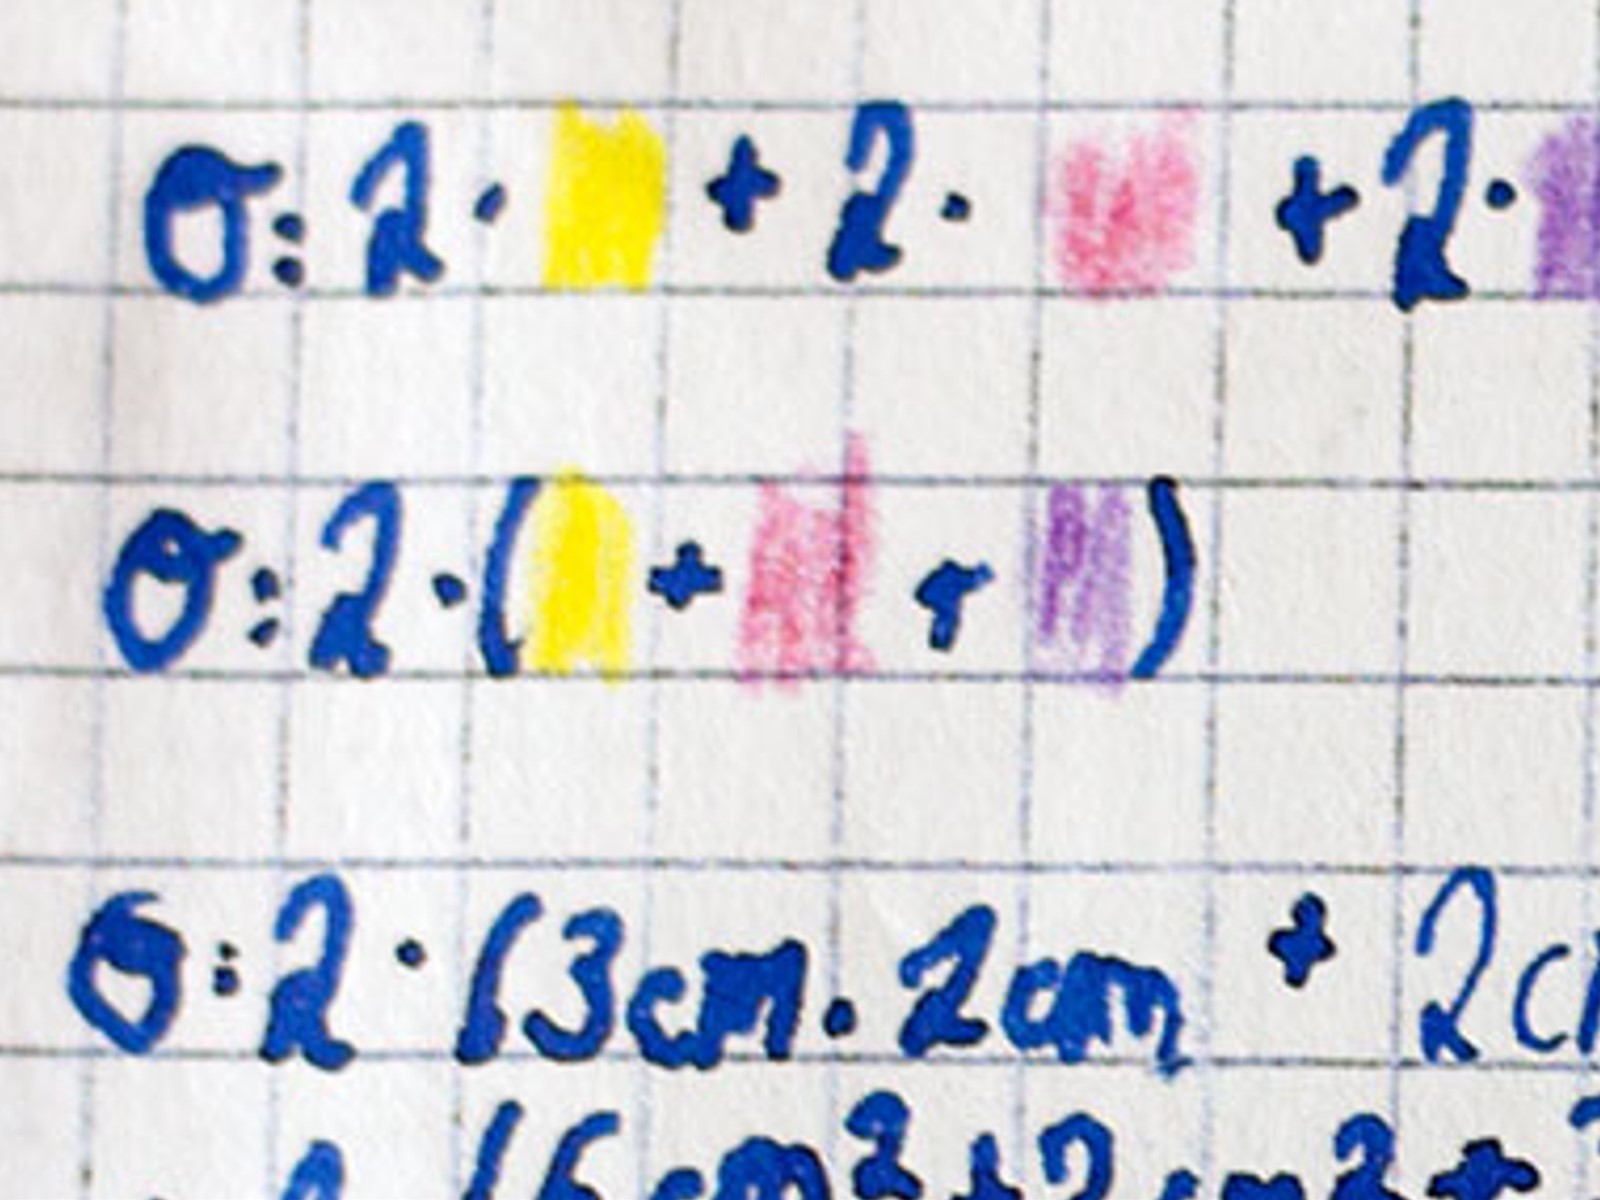 O: 2 · + 2 · + 2 ·
O: 2 · ( + + )
O: 2 · (3cm · 2cm + 2c
(6cm² + 2cm² +